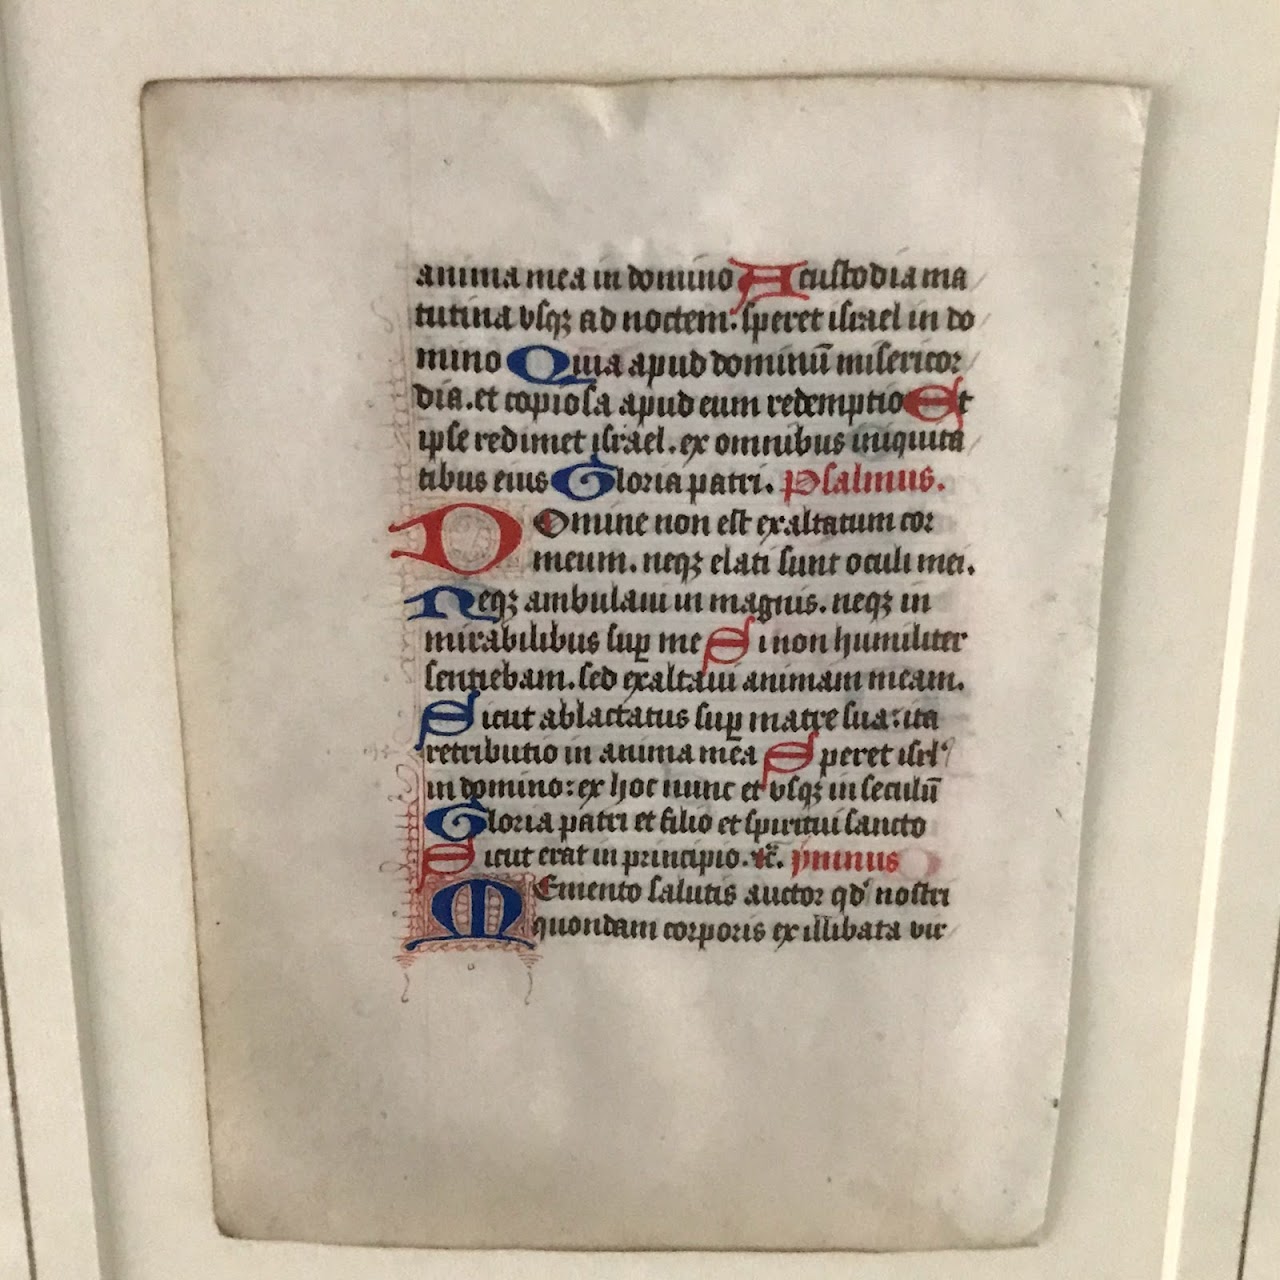 anima mea in domino A custodia ma
tutina vsqꝫ ad noctem. speret israel in do
mino Quia apud dominū misericor
dia. et copiosa apud eum redemptio Et
ipse redimet israel. ex omnibus iniquita
tibus eius Gloria patri. Psalmus.
Domine non est exaltatum cor
meum. neqꝫ elati sunt oculi mei.
Neqꝫ ambulaui in magnis. neqꝫ in
mirabilibus suꝑ me Si non humiliter
sentiebam. sed exaltaui animam meam.
Sicut ablactatus suꝑ matre sua: ita
retributio in anima mea Speret isrl'
in domino: ex hoc nunc et vsqꝫ in seculū
Gloria patri et filio et spiritui sancto
Sicut erat in principio. ⁊c̄. ymnus
Memento salutis auctor qd' nostri
quondam corporis ex illibata vir